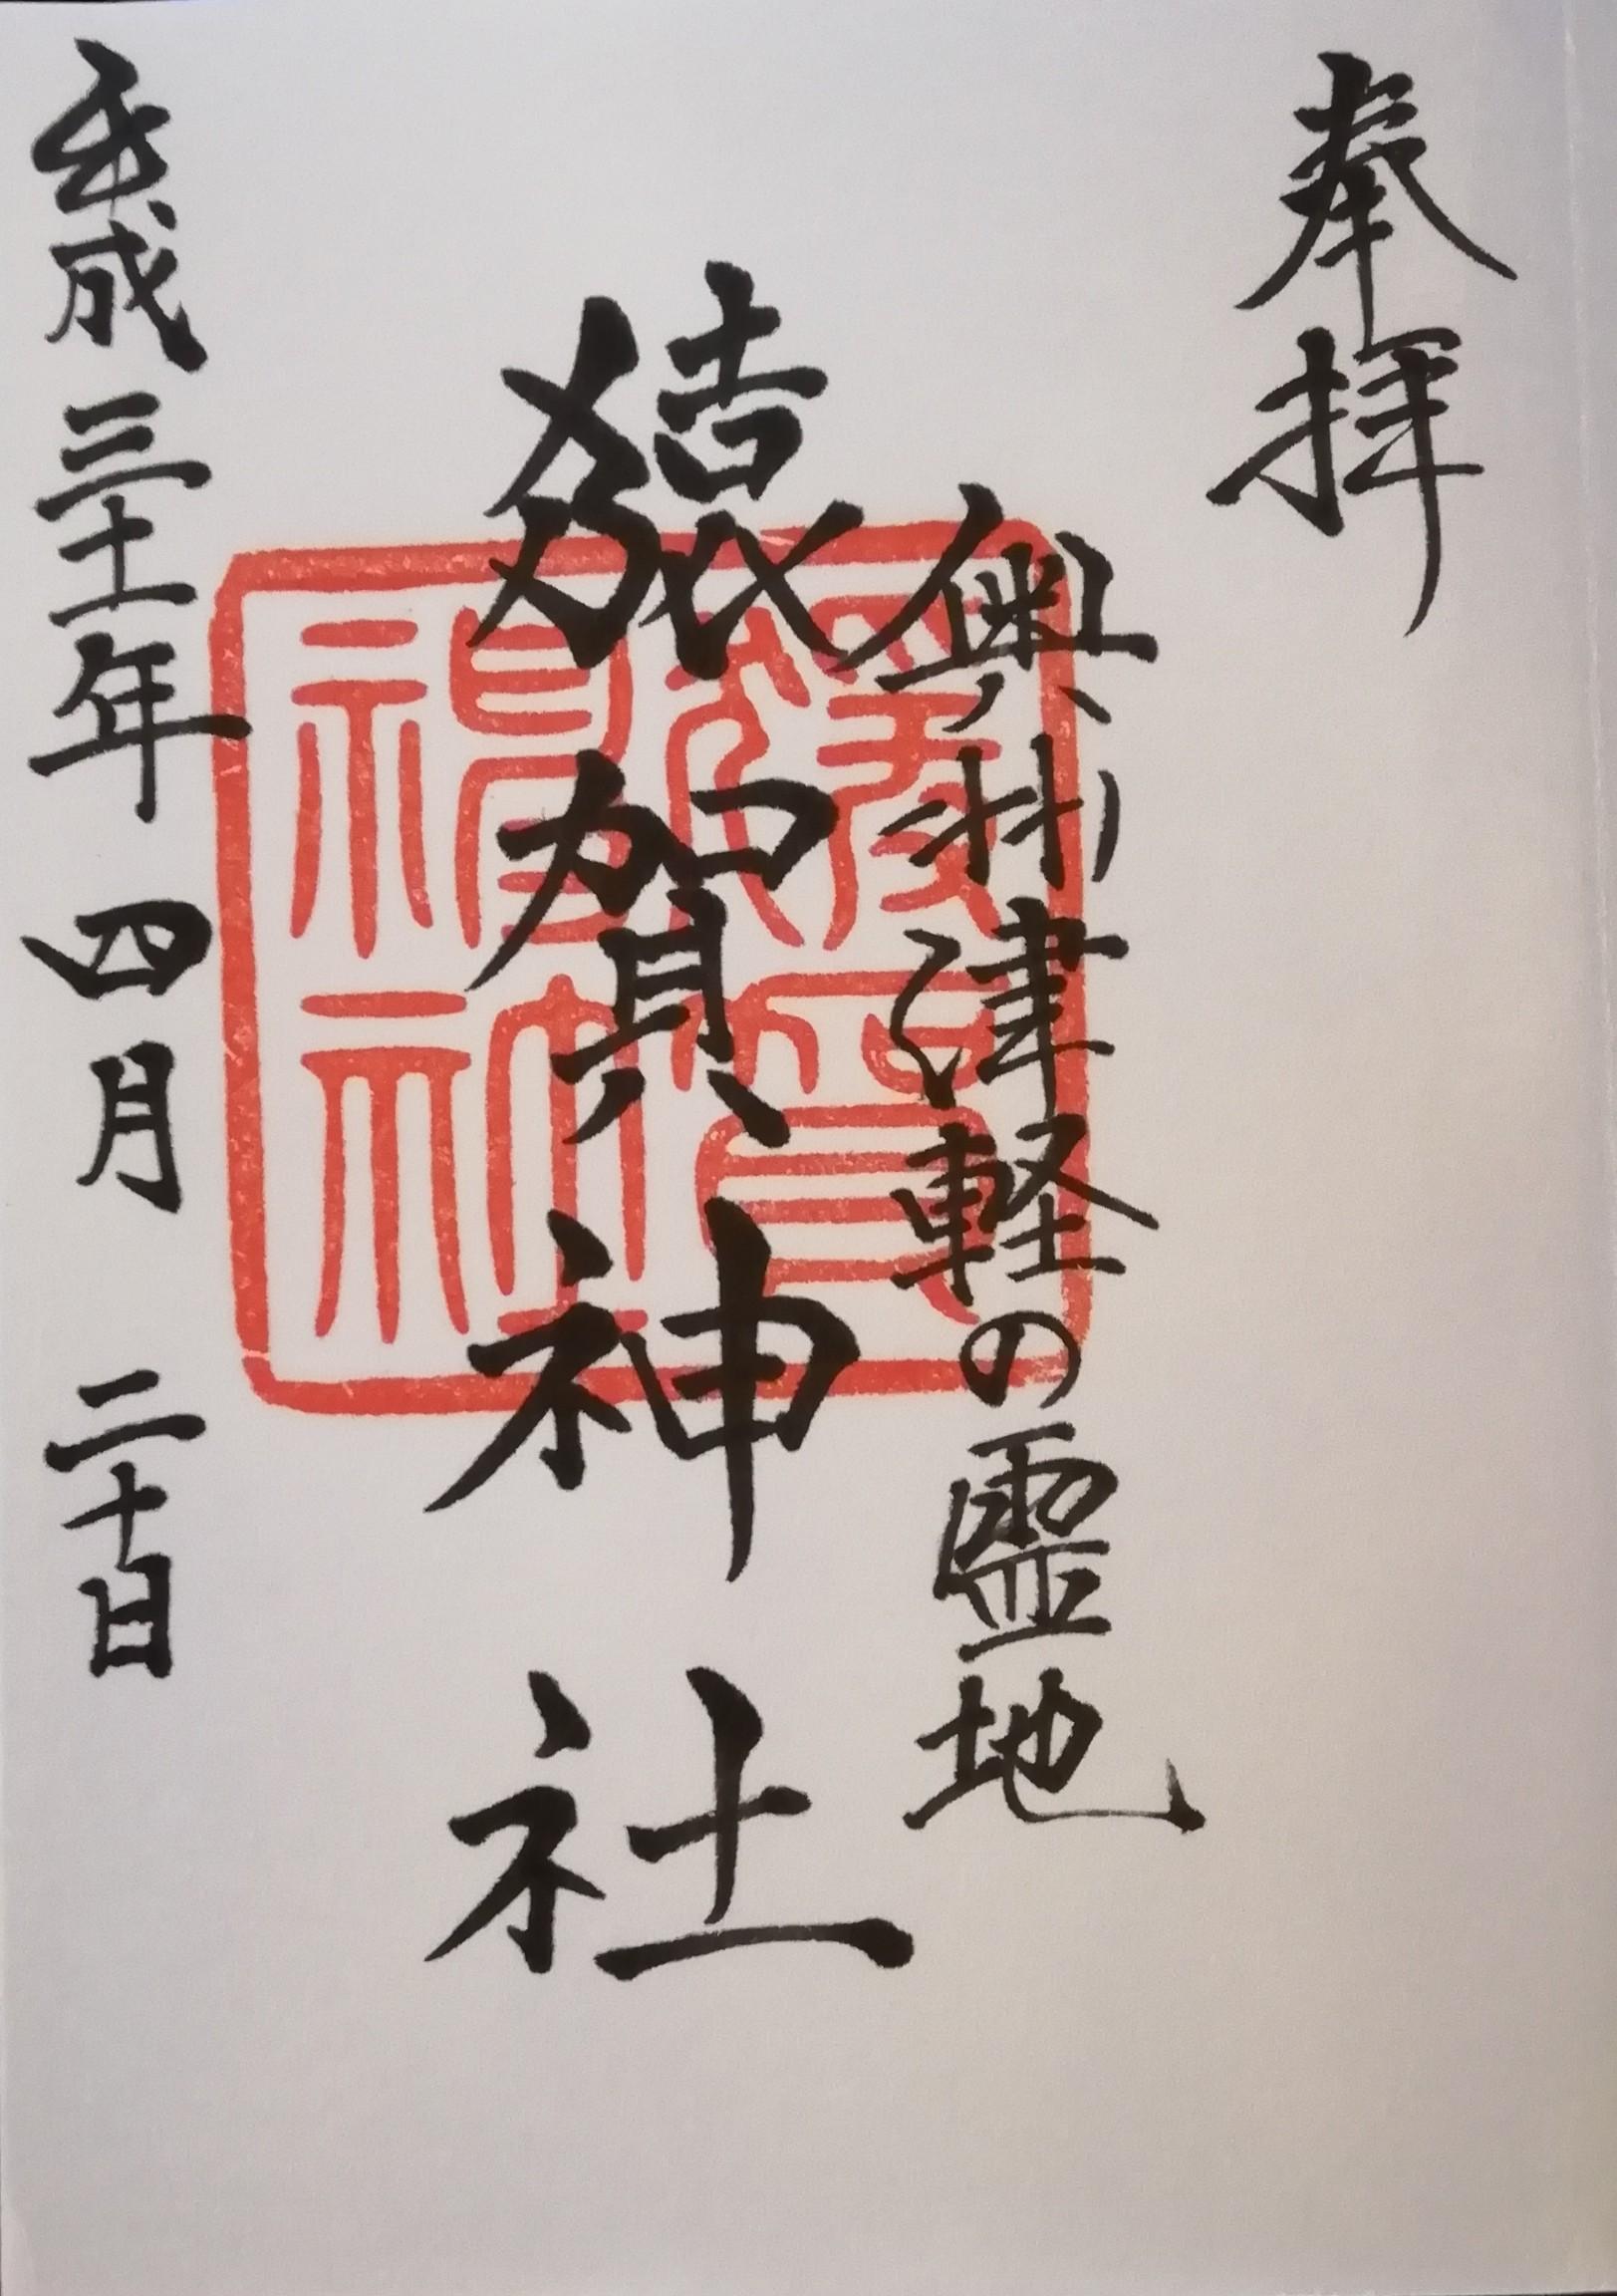 奉拝
奥州津軽の霊地
猿賀神社
平成三十一年四月二十日
猨賀
神社